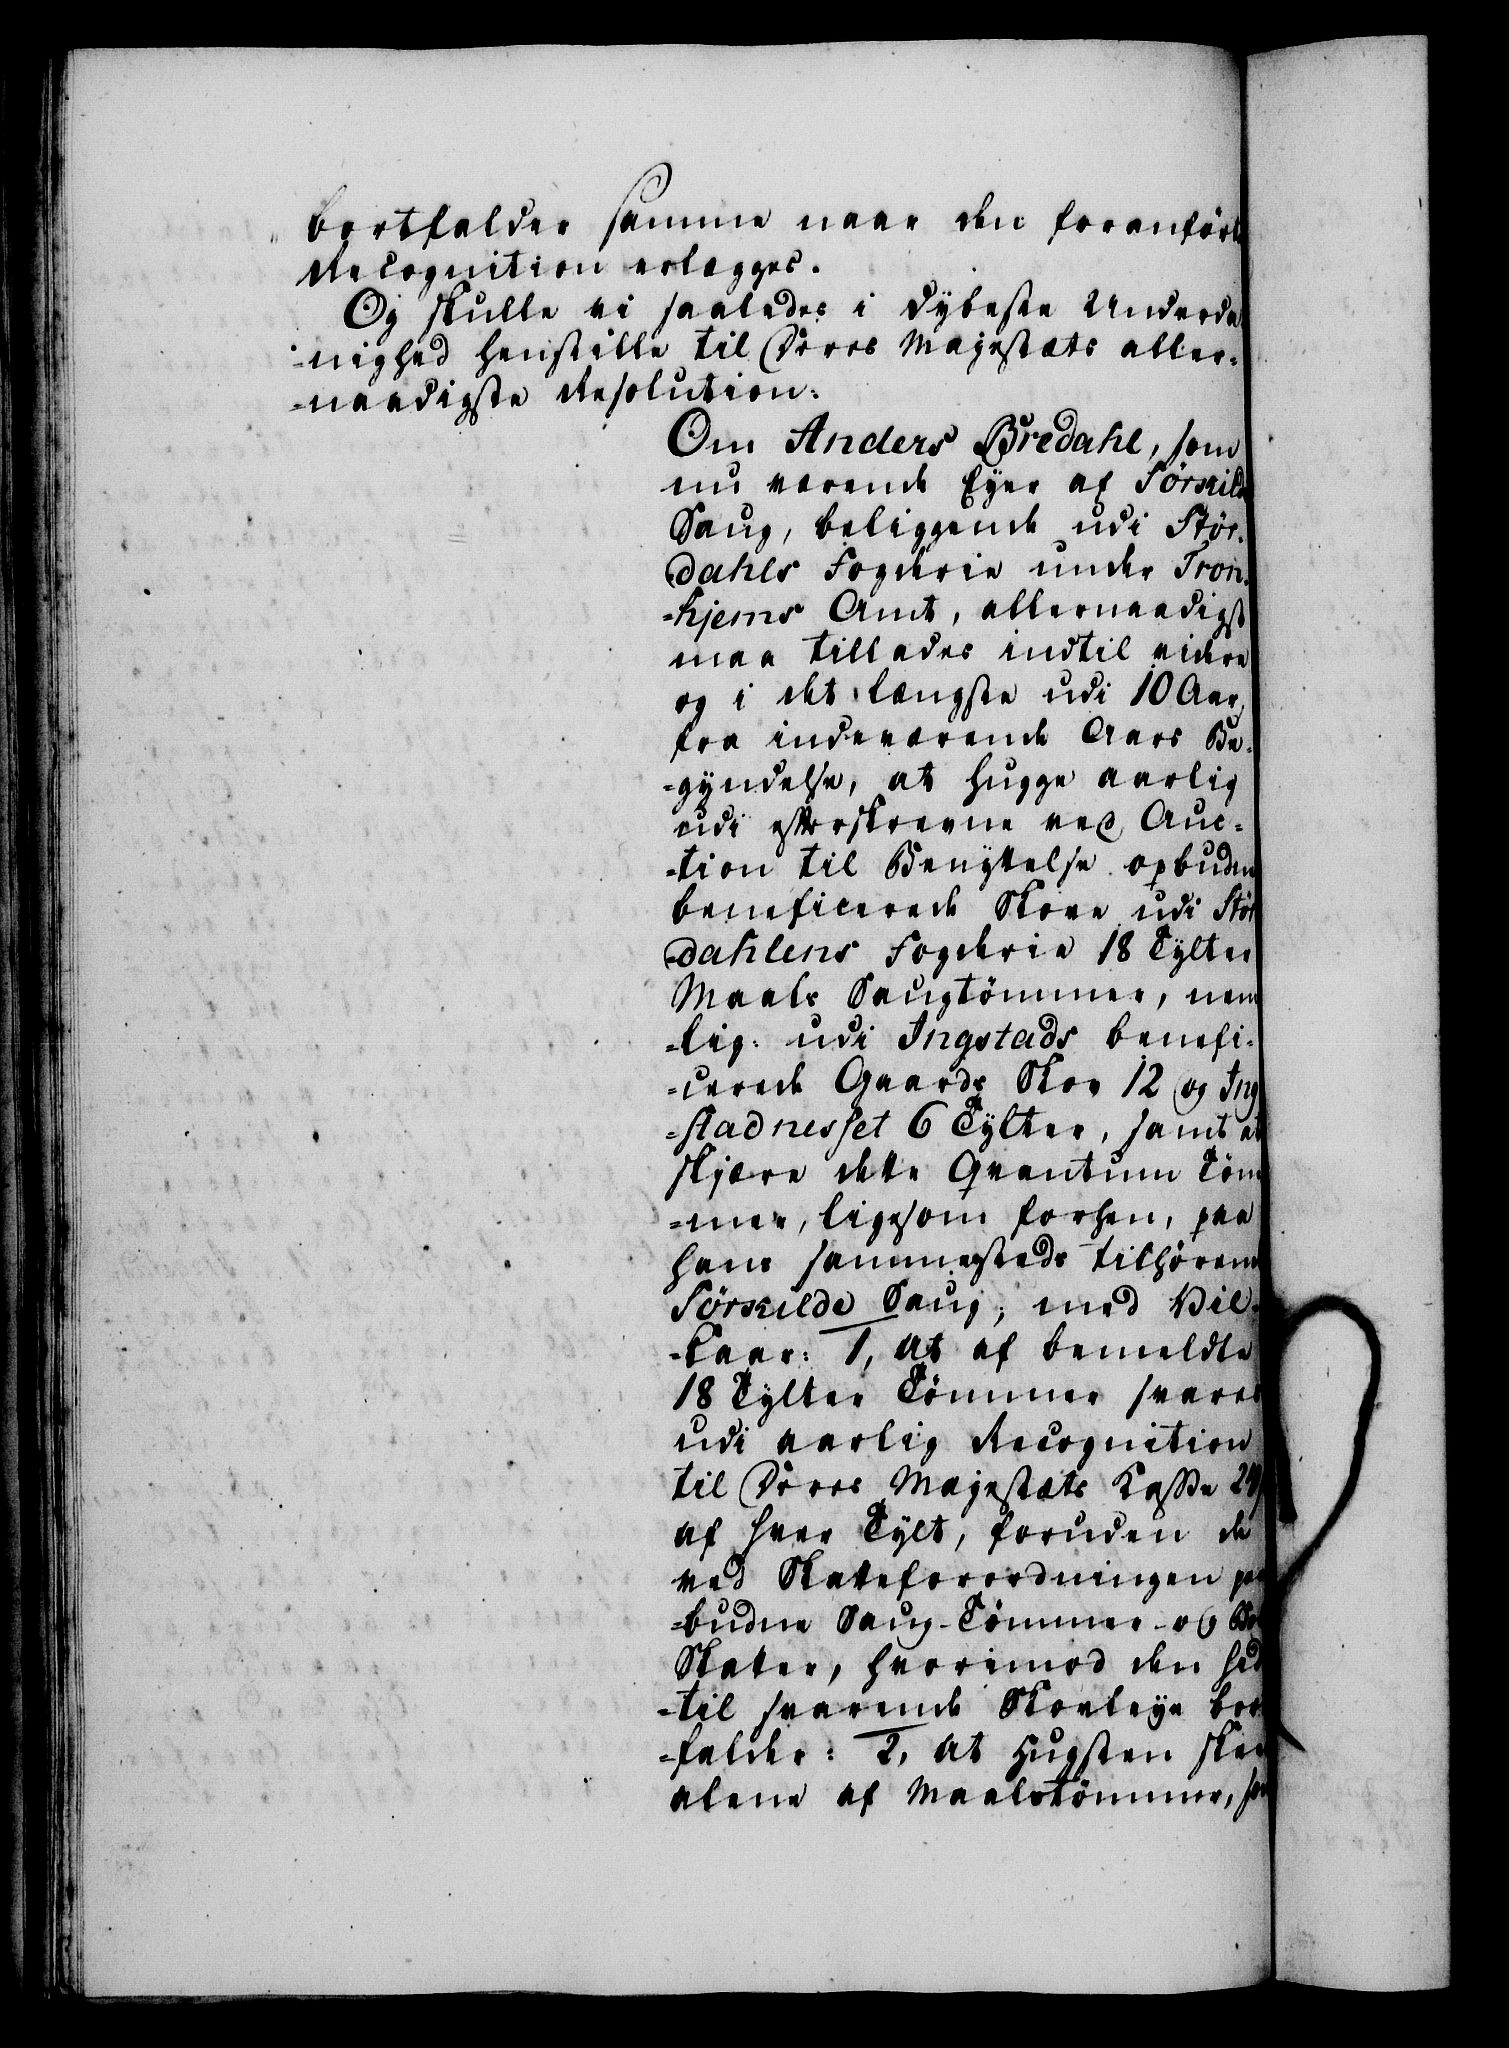 bortfalder samme naar den foranførte
Recognition erlægges.
Og skulle vi saaledes i dybeste Underda
-nighed henstille til Deres Majestæts aller-
-naadigste Resolution:
Om Anders Bredahl, som
nu værende Ejer af Sørkilde
Saug, beliggende udi Stør-
dahls Fogderie under Tron-
-hjems Amt, allernaadigst
maa tillades indtil videre
og i det længste udi 10 Aar,
fra indeværende Aars Be-
-gyndelse, at hugge aarlig
udi efterskrevne ved Auc-
-tion til Benyttelse opbudne
beneficerede Skove udi Stør
dahlens Fogderie 18 Tylter
Maals Saugtømmer, nem
-lig: udi Ingstads benefi-
-cerede Gaards Skov 12 og Ing
-stadnesset 6 Tylter, samt at
skjære dette Qvantum Tøm
-mer, ligesom forhen, paa
hans sammesteds tilhørende
Sørkilde Saug, med Vil-
-kaar: 1, At af bemeldte
18 Tylter Tømmer svares
udi aarlig Recognition
til Deres Majestæts Kasse 24
af hver Tylt, foruden de
ved Skatteforordningen paa
-budne Saug-Tømmer- og
Skatter, hvorimod den hid
-til svarende Skovleye bort
-falder: 2, At Hugsten skeer
alene af Maalstømmer, som